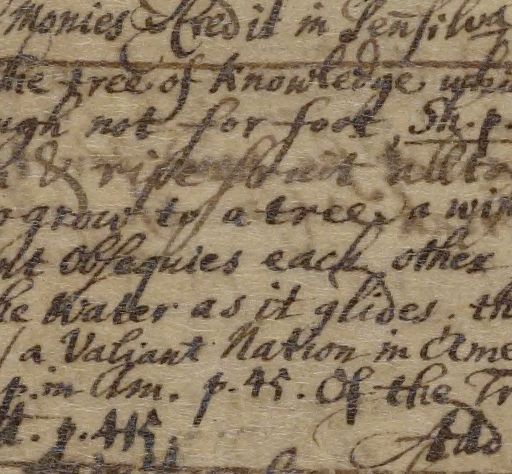 monies Credit in Pen̄silva
the tree of Knowledge, whi
ugh not for foot, Sh. p.
& ripe fruit all to
o grow to a tree, a wi
nt obsequies each other
he Water as it glides. th
(a Valiant Nation in Ame
p. in Am. p. 45. Of the Tr
tt. p. 415
Add